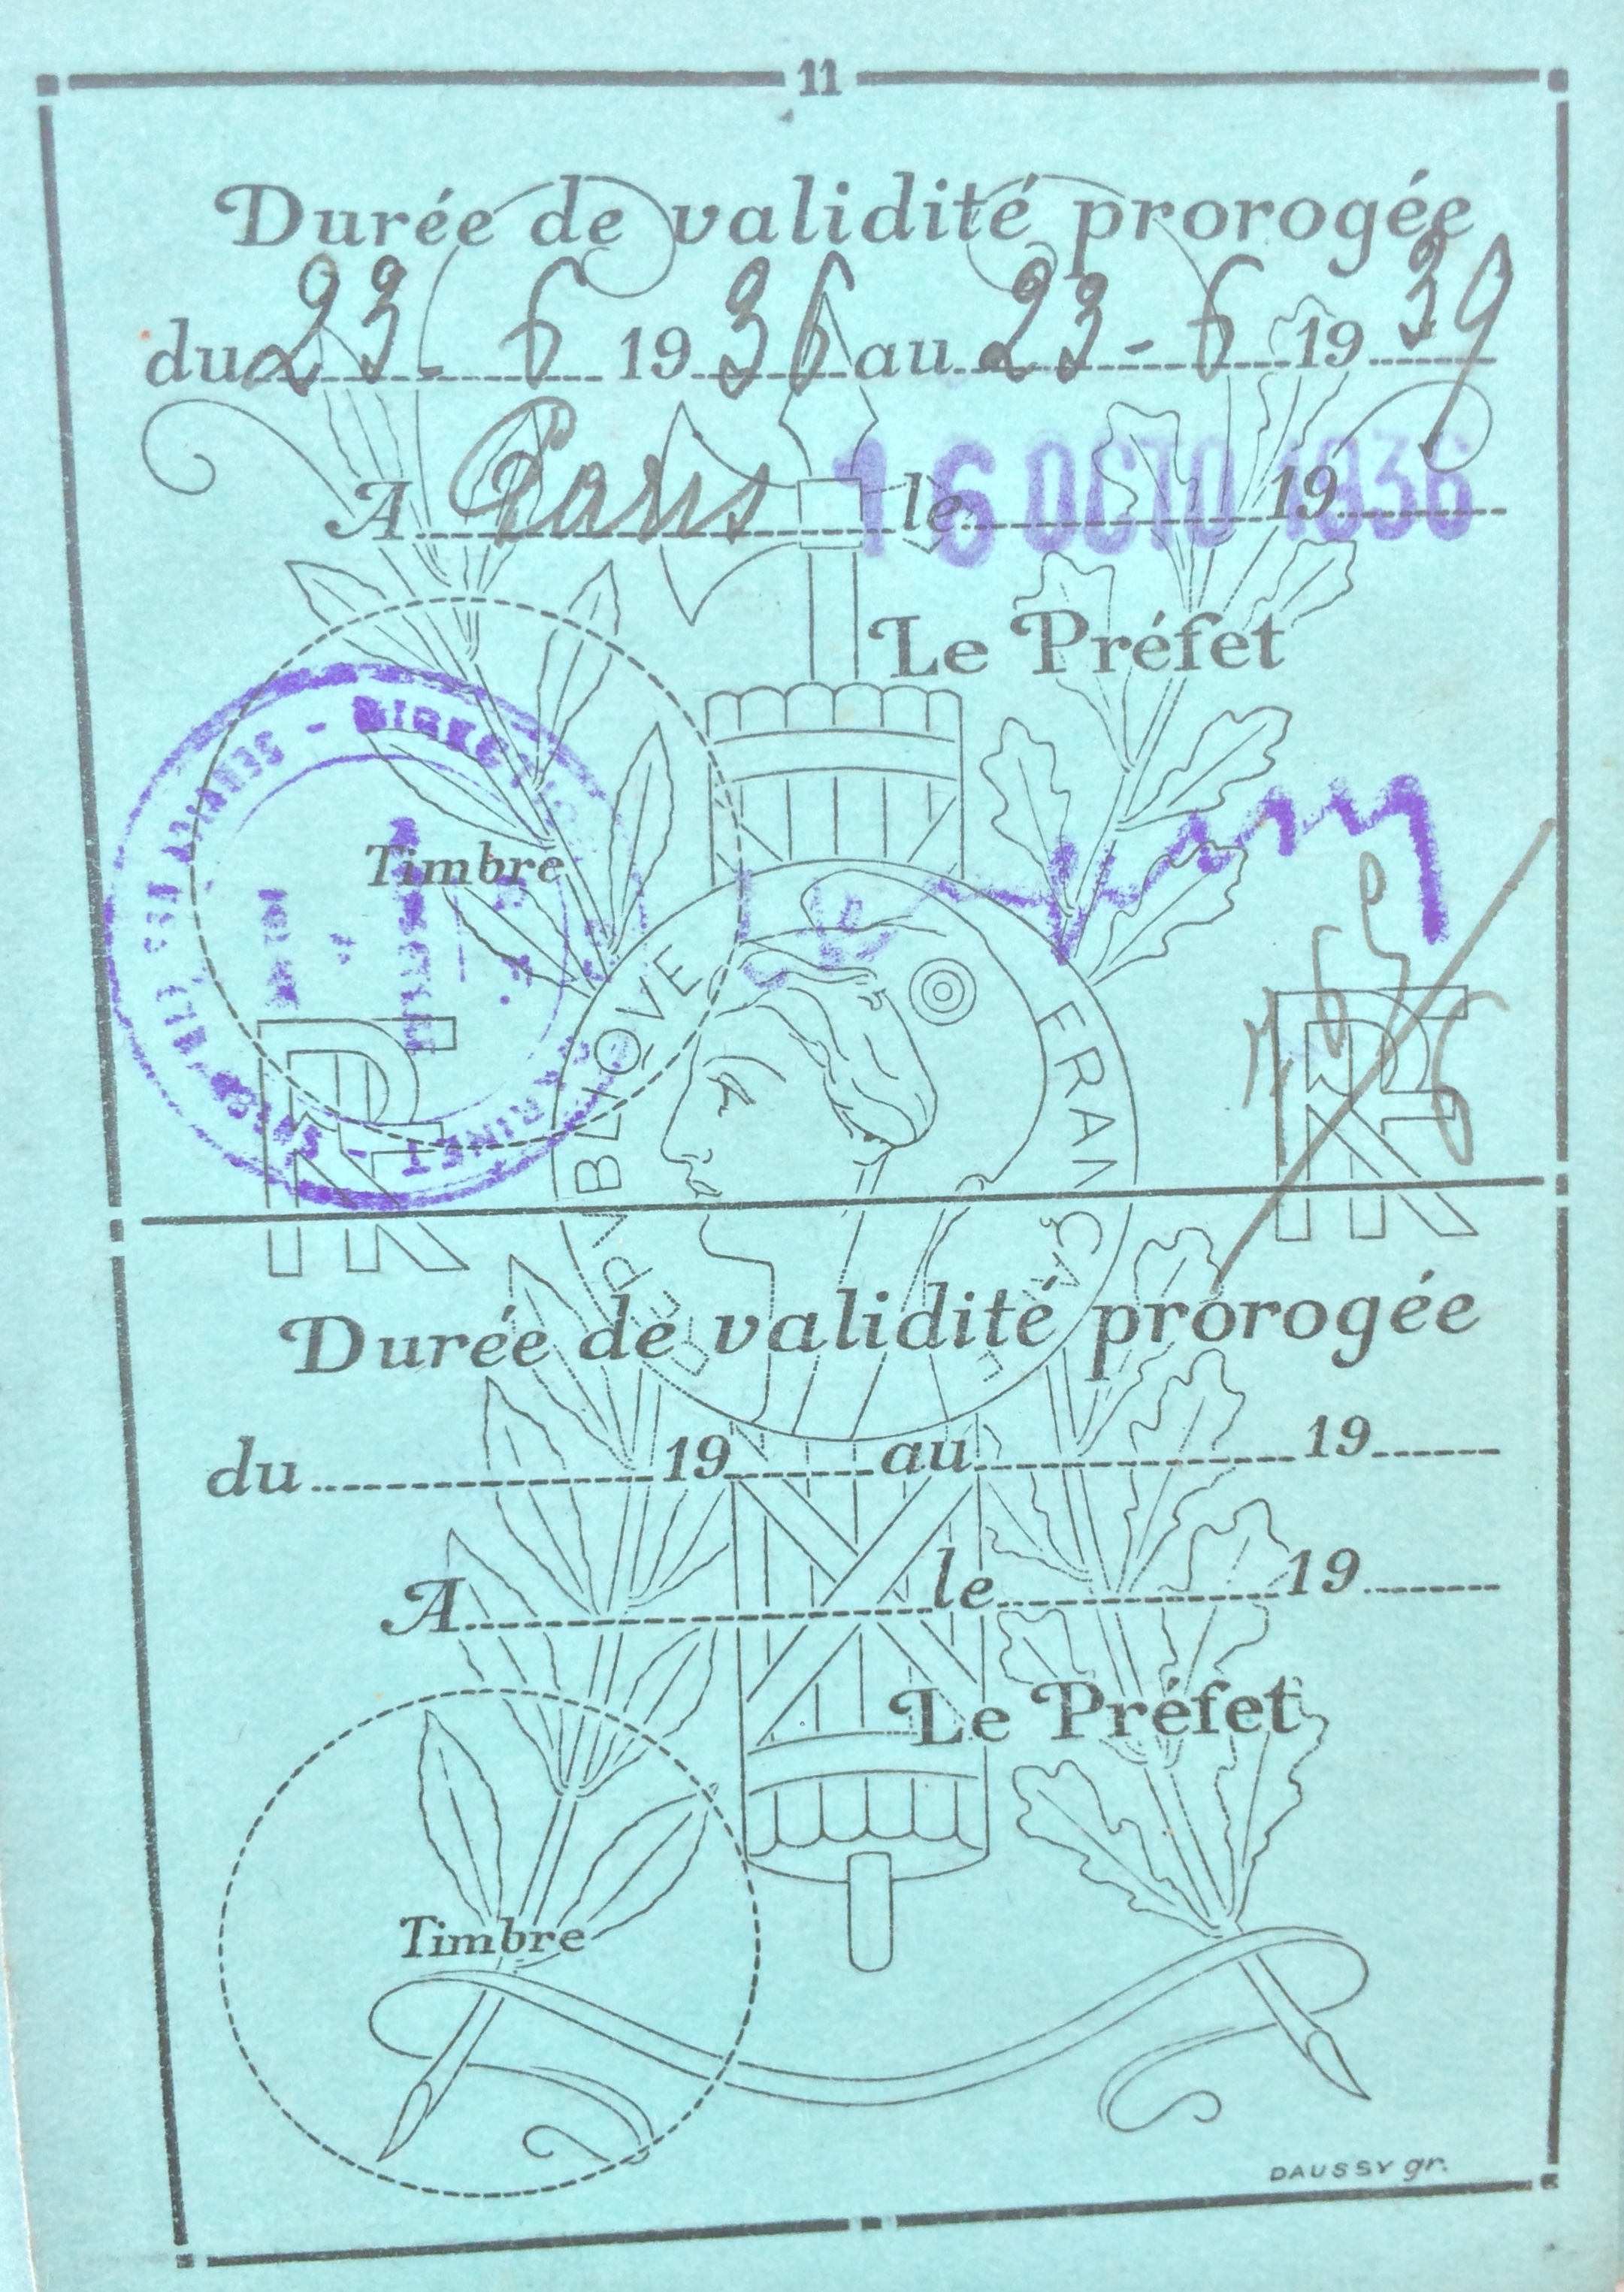 11
Durée de validité prorogée
du 23 - 6 1936 au 23 - 6 1939
A Paris le 16 OCTO 1936 19
Le Préfet
Timbre
RF
REPVBLIQVE FRANÇAISE
RF
Durée de validité prorogée
du 19 au 19
A le 19
Le Préfet
Timbre
DAUSSY gr.